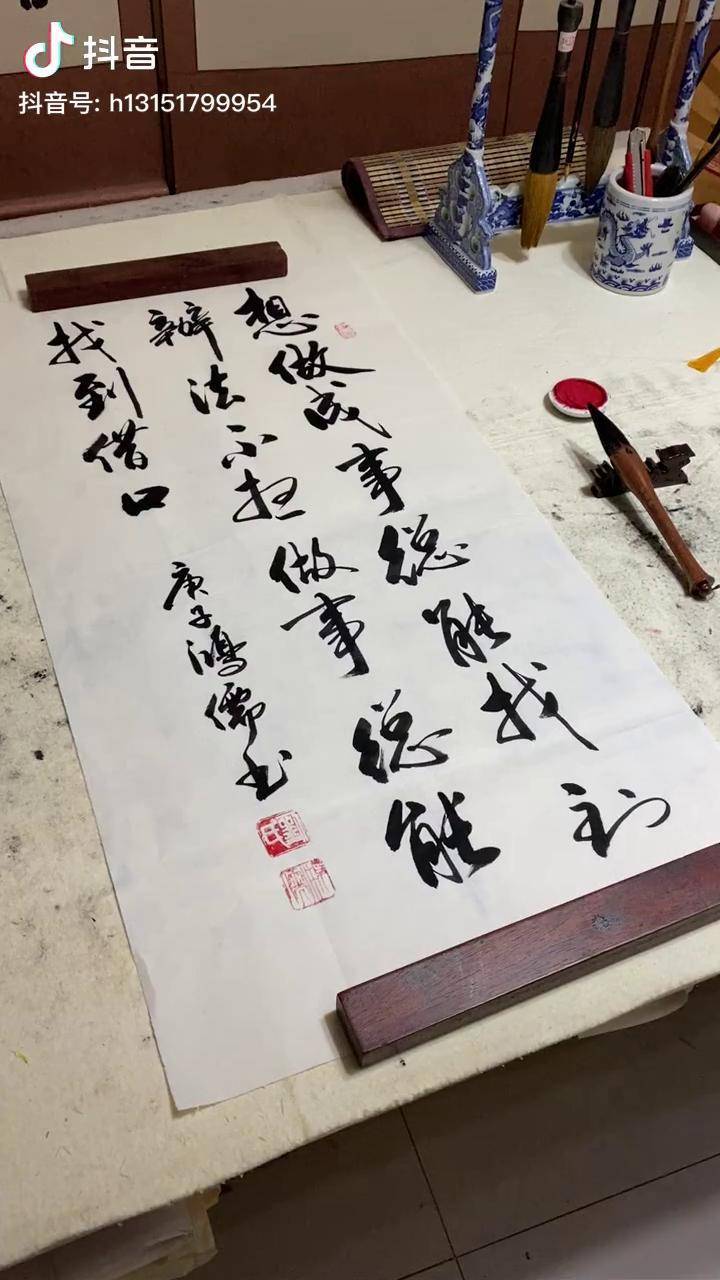 抖音
抖音号: h13151799954
想做成事总能找到
辦法不想做事总能
找到借口
庚子鸿儒书